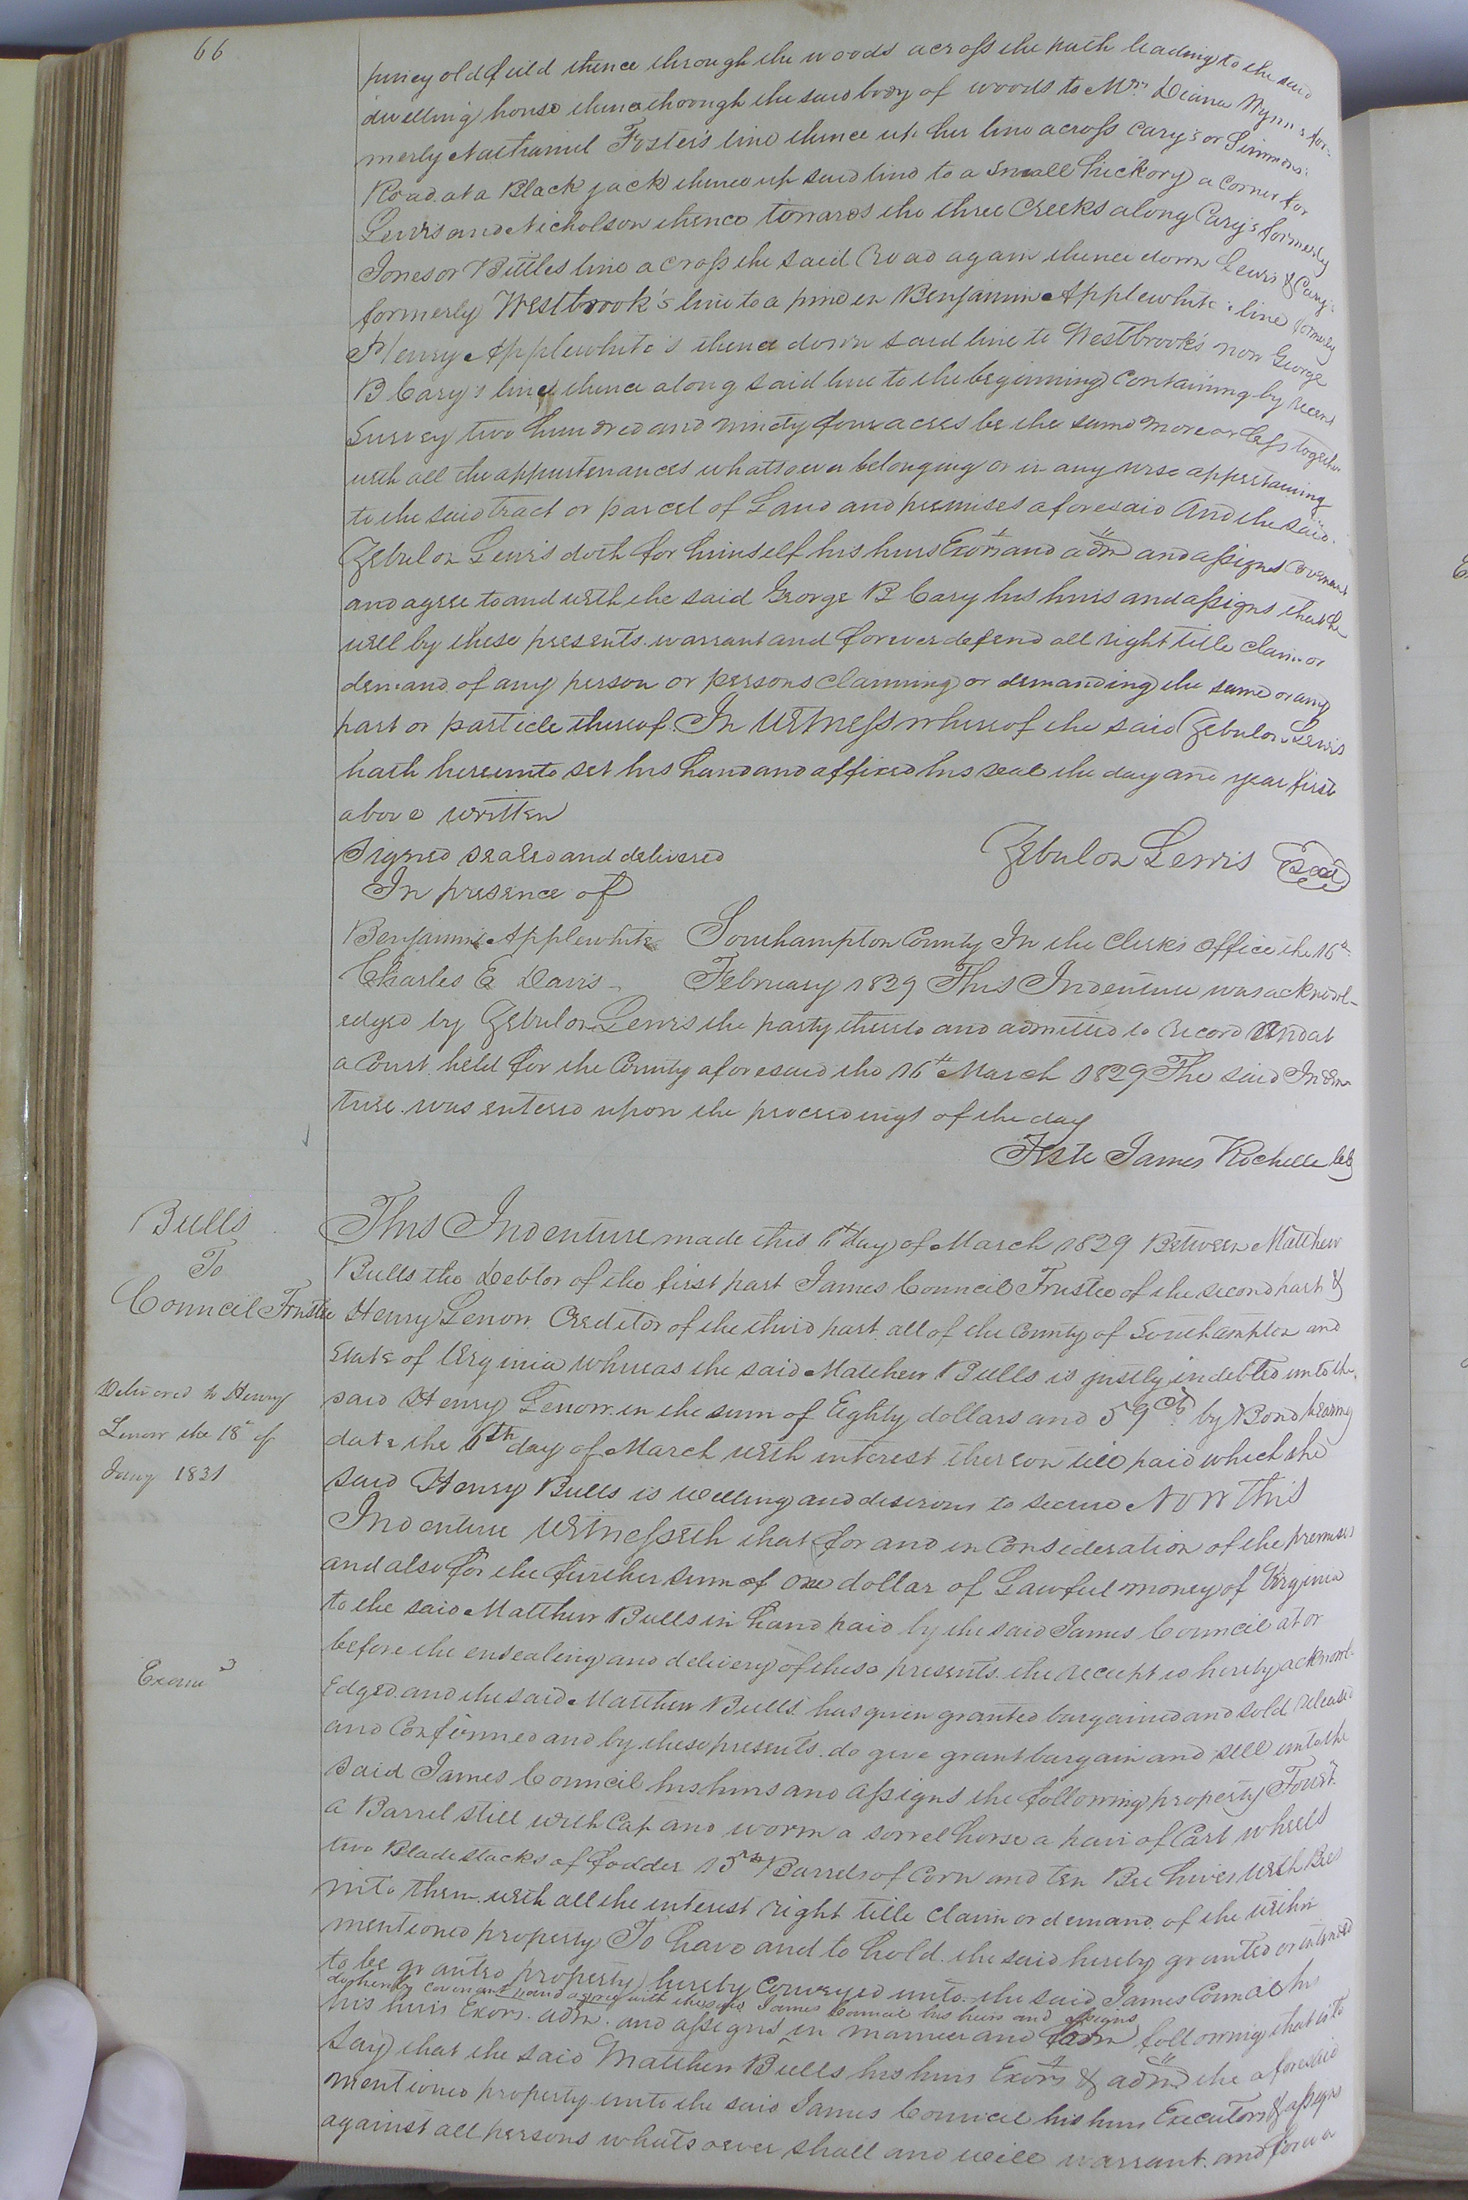 66
piney old field thence through the woods across the path leading to the said
dwelling house thence thoough the said body of woods to Mrs Diana Wynns for-
merly Nathaniel Foster's line thence up her line across Cary's or Simmons
Road at a Black jack thence up said line to a small hickory a corner for
Lewis and Nicholson thence towards the three Creeks along Cary's formerly
Jones or Bittles line across the said Road again thence down Lewis & Cary's
formerly Westbrook's line to a pine in Benjamin Applewhite's line formerly
Henry Applewhite's thence down said line to Westbrook's now George
B Cary's line thence along said line to the beginning containing by recent
Survey two hundred and ninety four acres be the same more or less together
with all the appurtenances whatsoever belonging or in any wise appertaining
to the said tract or parcel of Land and premises aforesaid And the said
Zebulon Lewis doth for himself his heirs Exors and adm and assigns covenant
and agree to and with the said George B Cary his heirs and assigns that he
will by these presents warrant and forever defend all right title claim or
demand of any person or persons claiming or demanding the same or any
part or particle thereof. In Witness whereof the said Zebulon Lewis
hath hereunto set his hand and affixed his seal the day and year first
above written
Signed sealed and delivered Zebulon Lewis Seal
In presence of
Benjamin Applewhite Southampton County In the Clerks Office the 16th
Charles E Davis February 1829 This Indenture was acknowl-
edged by Zebulon Lewis the party thereto and admitted to Record And at
a Court held for the County aforesaid the 16th March 1829 The said Inden
ture was entered upon the proceedings of the day
Teste James Rochelle Clk
Bulls
To
Council Trustee
Delivered to Henry
Lenow the 18th of
Jany 1831
Examd
This Indenture made this 6th day of March 1829 Between Matthew
Bulls the Debtor of the first part James Council Trustee of the second part &
Henry Lenow Creditor of the third part all of the County of Southampton and
State of Virginia Whereas the said Matthew Bulls is justly indebted unto the
said Henry Lenow in the sum of Eighty dollars and 59 cts by Bond bearing
date the 6th day of March with interest thereon till paid which the
said Henry Bulls is willing and desirous to secure Now This
Indenture Witnesseth that for and in Consideration of the premises
and also for the further sum of one dollar of Lawful money of Virginia
to the said Matthew Bulls in hand paid by the said James Council at or
before the ensealing and delivery of these presents the receipt is hereby acknowl-
edged and the said Matthew Bulls has given granted bargained and sold released
and Confirmed and by these presents do give grant bargain and sell unto the
said James Council his heirs and assigns the following property Towit
a Barrel still with Cap and worm a sorrel horse a pair of Cart wheels
two Blade stacks of fodder 15 Barrels of Corn and ten Bee hives with Bees
into them with all the interest right title claim or demand of the within
mentioned property To have and to hold the said hereby granted or intended
to be granted property hereby conveyed unto the said James Council his
do hereby covenant and agree with the said James Council his heirs and assigns
his heirs Exors. adm. and assigns in manner and form following that is to
say that the said Matthew Bulls his heirs Exors & adm the aforesaid
mentioned property unto the said James Council his heirs Executors & assigns
against all persons whatsoever shall and will warrant and foreve